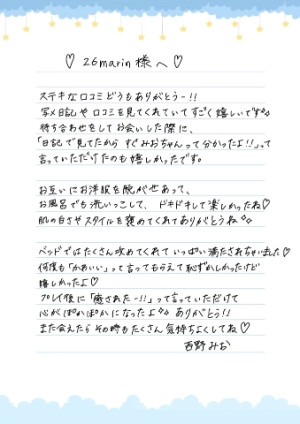 ♡ 26marin 様へ ♡
ステキな口コミどうもありがとう〜!!
写メ日記や口コミを見てくれていてすごく嬉しいです✨
待ち合わせをしてお会いした際に、
「日記で見てたからすぐみおちゃんって分かったよ!!」って
言っていただけたのも嬉しかったです。
お互いにお洋服を脱がせあって、
お風呂でも洗いっこして、ドキドキして楽しかったね♡
肌の白さやスタイルを褒めてくれてありがとうね✨
ベッドではたくさん攻めてくれていっぱい満たされちゃいました♡
何度も「かわいい」って言ってもらえて恥ずかしかったけど
嬉しかったよ♡
プレイ後に「癒された〜!!」って言っていただけて
心がぽかぽかになったよ✨ ありがとう!!
また会えたらその時もたくさん気持ちよくしてね♡
西野みお